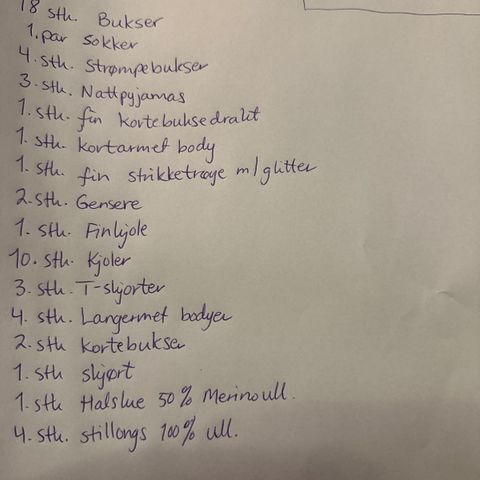 18 stk. Bukser
1. par sokker
4. stk. Strømpebukser
3. stk. Nattpyjamas
1. stk. fin kortebuksedrakt
1. stk. kortarmet body
1. stk. fin strikketrøye m/glitter
2. stk. Gensere
1. stk. Finkjole
10. stk. Kjoler
3. stk. T-skjorter
4. stk. Langermet bodyer
2. stk kortebukser
1. stk skjørt
1. stk Halslue 50% Merinoull.
4. stk. stillongs 100% ull.